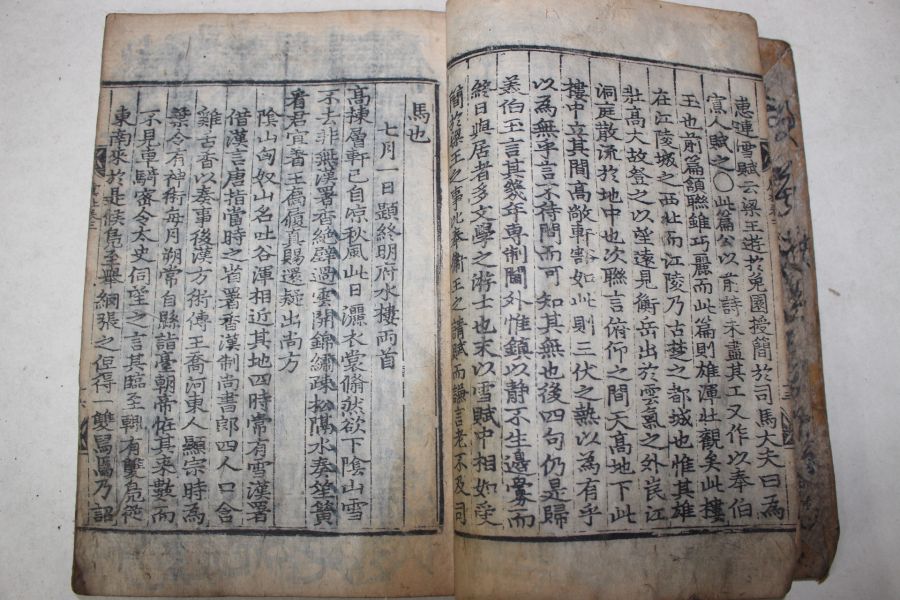 惠連雪賦云梁王遊於兎園授簡於司馬大夫曰爲
寡人賦之○此篇公以前詩未盡其工又作以奉伯
王也前篇頷聯雖巧麗而此篇則雄渾壯觀矣此樓
在江陵城之西北而江陵乃古楚之都城也惟其雄
壯高大故登之以望遠見衡岳出於雲氣之外岷江
洞庭散流於地中也次聯言俯仰之間天高地下此
樓中立其間高敞軒豁如此則三伏之熱以爲有乎
以爲無乎言不待問而可知其無也後四句仍是歸
美伯王言其幾年專制閫外惟鎮以靜不生邊釁而
終日與居者多文學之游士也末以雪賦中相如受
簡於梁王之事比奉衛王之請賦而謙言老不及同
馬也
七月一日題終明府水樓兩首
高棟層軒已自涼秋風此日灑衣裳翛然欲下陰山雪
不去非無漢署香絶壁過雲開錦繡疎松隔水奏笙簧
看君宜著王喬履眞賜還疑出尚方
陰山匈奴山名吐谷渾相近其地四時常有雪漢署
借漢言唐指當時之省署香漢制尚書郎四人口含
雞舌香以奏事後漢方術傳王喬河東人顯宗時爲
葉令有神術每月朔常自縣詣臺朝帝恠其來數而
不見車騎密令太史伺望之言其臨至輒有雙鳧從
東南來於是候鳧至舉網張之但得一雙舄焉乃詔